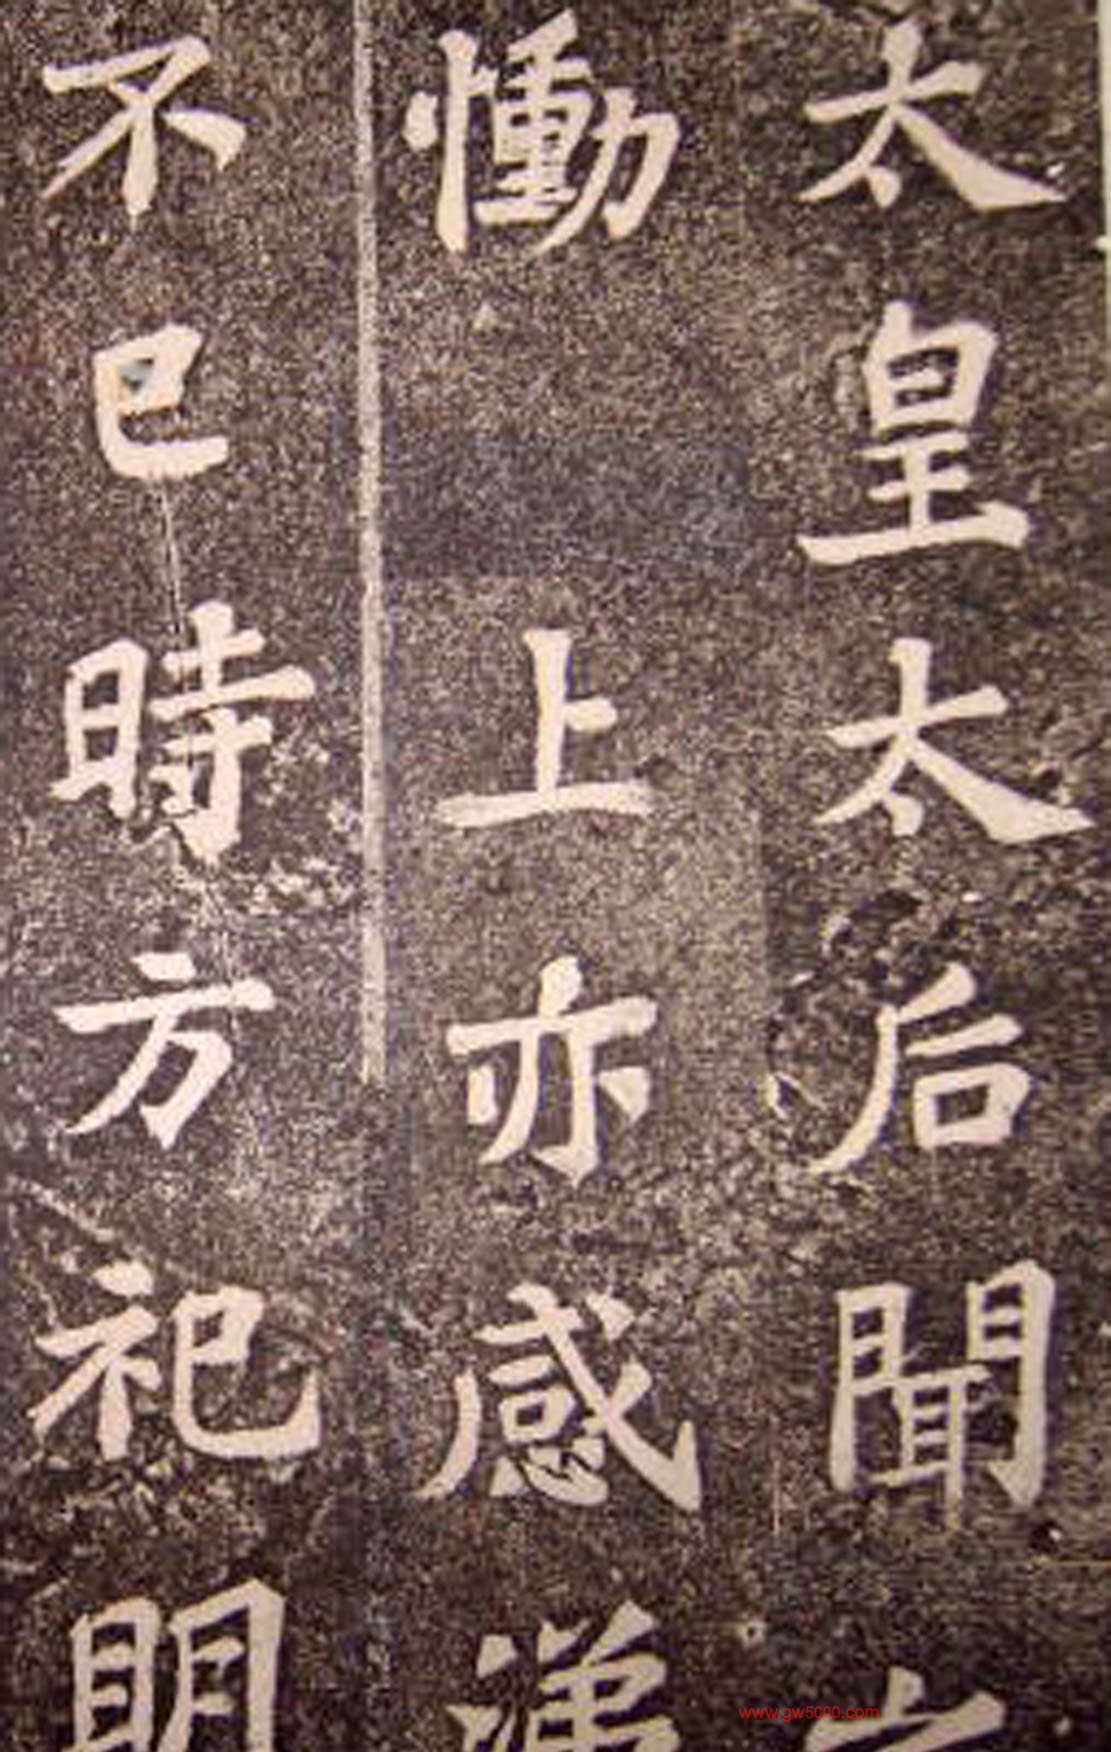 太皇太后聞之
慟 上亦感涕
不已時方祀明
www.gw5000.com